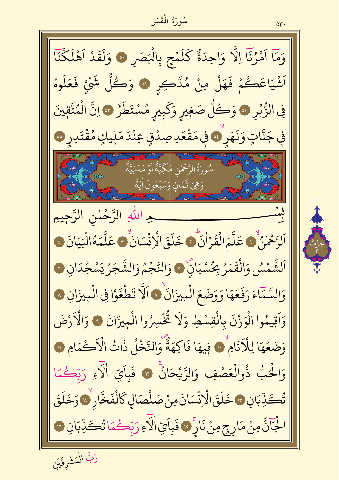 سُورَةُ الْقَمَرِ ٥٣٠
وَمَٓا اَمْرُنَٓا اِلَّا وَاحِدَةٌ كَلَمْحٍ بِالْبَصَرِ ﴿٥٠﴾ وَلَقَدْ اَهْلَكْنَٓا
اَشْيَاعَكُمْ فَهَلْ مِنْ مُدَّكِرٍ ﴿٥١﴾ وَكُلُّ شَيْءٍ فَعَلُوهُ
فِي الزُّبُرِ ﴿٥٢﴾ وَكُلُّ صَغِيرٍ وَكَبِيرٍ مُسْتَطَرٌ ﴿٥٣﴾ اِنَّ الْمُتَّقِينَ
فِي جَنَّاتٍ وَنَهَرٍ ﴿٥٤﴾ فِي مَقْعَدِ صِدْقٍ عِنْدَ مَلِيكٍ مُقْتَدِرٍ ﴿٥٥﴾
سُورَةُ الرَّحْمٰنِ مَكِّيَّةٌ اَوْ مَدَنِيَّةٌ
وَهِيَ ثَمَانٍ وَسَبْعُونَ اٰيَةً
بِسْمِ اللّٰهِ الرَّحْمٰنِ الرَّحِيمِ
اَلرَّحْمٰنُ ﴿١﴾ عَلَّمَ الْقُرْاٰنَ ﴿٢﴾ خَلَقَ الْاِنْسَانَ ﴿٣﴾ عَلَّمَهُ الْبَيَانَ ﴿٤﴾
اَلشَّمْسُ وَالْقَمَرُ بِحُسْبَانٍ ﴿٥﴾ وَالنَّجْمُ وَالشَّجَرُ يَسْجُدَانِ ﴿٦﴾
وَالسَّمَٓاءَ رَفَعَهَا وَوَضَعَ الْمِيزَانَ ﴿٧﴾ اَلَّا تَطْغَوْا فِي الْمِيزَانِ ﴿٨﴾
وَاَقِيمُوا الْوَزْنَ بِالْقِسْطِ وَلَا تُخْسِرُوا الْمِيزَانَ ﴿٩﴾ وَالْاَرْضَ
وَضَعَهَا لِلْاَنَامِ ﴿١٠﴾ فِيهَا فَاكِهَةٌ وَالنَّخْلُ ذَاتُ الْاَكْمَامِ ﴿١١﴾
وَالْحَبُّ ذُو الْعَصْفِ وَالرَّيْحَانُ ﴿١٢﴾ فَبِاَيِّ اٰلَٓاءِ رَبِّكُمَا
تُكَذِّبَانِ ﴿١٣﴾ خَلَقَ الْاِنْسَانَ مِنْ صَلْصَالٍ كَالْفَخَّارِ ﴿١٤﴾ وَخَلَقَ
الْجَٓانَّ مِنْ مَارِجٍ مِنْ نَارٍ ﴿١٥﴾ فَبِاَيِّ اٰلَٓاءِ رَبِّكُمَا تُكَذِّبَانِ ﴿١٦﴾
رَبُّ الْمَشْرِقَيْنِ